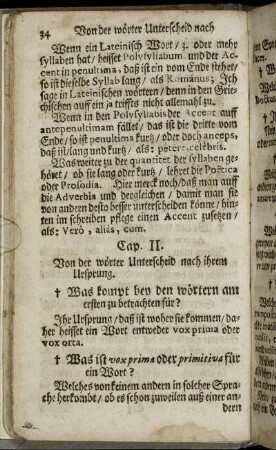 34 Von der wörter Unterscheid nach
Wenn ein Lateinisch Wort / 3. oder mehr
syllaben hat / heisset Polysyllabum und der Ac-
cent in penultima, daß ist ein vom Ende stehet /
so ist dieselbe Syllab lang / als Románus; Ich
sage in Lateinischen wörtern / denn in den Grie-
chischen auff ein ja triffts nicht allemahl zu.
Wenn in den Polysyllabis der Accent auff
antepenultimam fället / das ist die dritte vom
Ende / so ist penultima kurtz / oder doch anceps,
daß ist / lang und kurtz / als: pétere, célebris.
Was weiter zu der quantitet der syllaben ge-
höret / ob sie lang oder kurtz / lehret die Poëtica
oder Prosodia. Hier merck noch / daß man auff
die Adverbia und dergleichen / damit man sie
von andern desto besser unterscheiden könne / hin-
ten im schreiben pflege einen Accent zusetzen /
als: Verò, aliàs, cum.
Cap. II.
Von der wörter Unterscheid nach ihrem
Ursprung.
† Was kompt bey den wörtern am
ersten zu betrachten für?
Ihr Ursprung / daß ist woher sie kommen / da-
her heisset ein Wort entweder vox prima oder
vox orta.
† Was ist vox prima oder primitiva für
ein Wort?
Welches von keinem andern in solcher Spra-
che herkombt / ob es schon zuweilen auß einer an-
dern